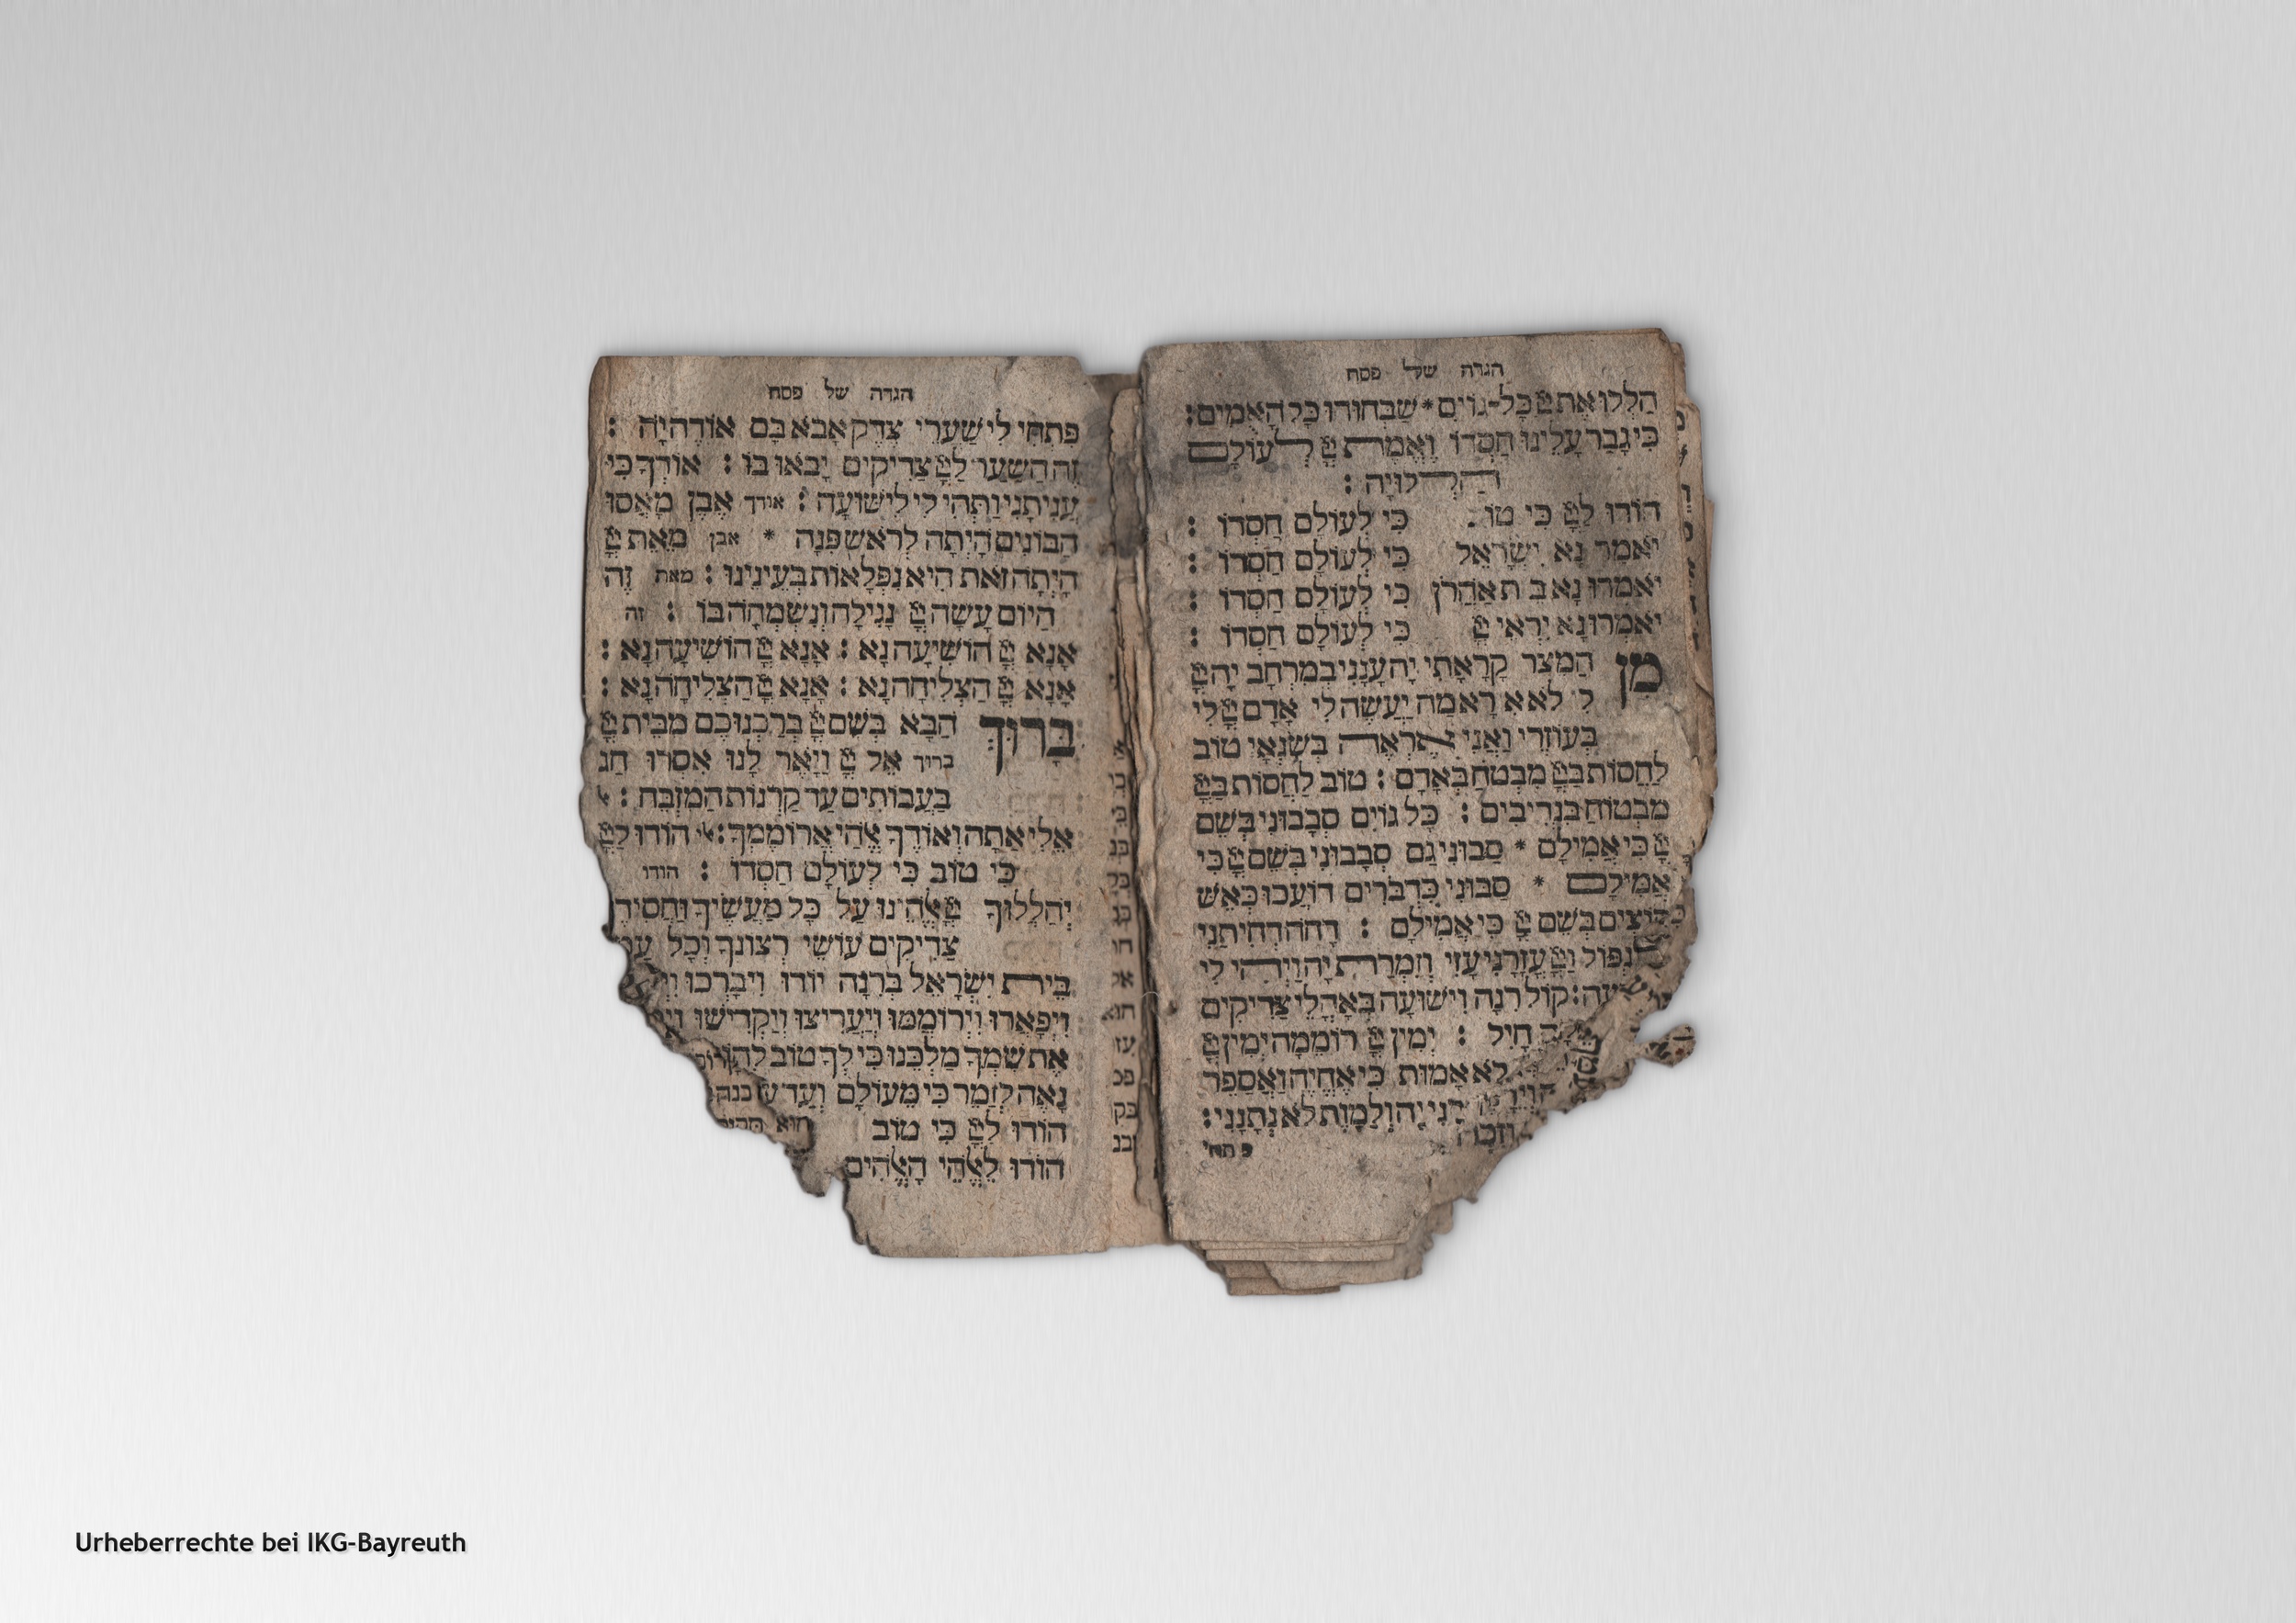 הגדה של פסח
הַלְלוּ אֶת יְיָ כָּל־גּוֹיִם * שַׁבְּחוּהוּ כָּל הָאֻמִּים :
כִּי גָבַר עָלֵינוּ חַסְדּוֹ וֶאֱמֶת יְיָ לְעוֹלָם
הַלְלוּיָהּ :
הוֹדוּ לַיְיָ כִּי כִּי לְעוֹלָם חַסְדּוֹ :
יֹאמַר נָא יִשְׂרָאֵל כִּי לְעוֹלָם חַסְדּוֹ :
יֹאמְרוּ נָא אַהֲרֹן כִּי לְעוֹלָם חַסְדּוֹ :
יֹאמְרוּ נָא יִרְאֵי יְיָ כִּי לְעוֹלָם חַסְדּוֹ :
מִן הַמֵּצַר קָרָאתִי יָהּ עָנָנִי בַמֶּרְחָב יָהּ יְיָ
לִי לֹא אִירָא מַה יַּעֲשֶׂה לִי אָדָם יְיָ לִי
בְּעוֹזְרִי וַאֲנִי אֶרְאֶה בְּשׂנְאָי טוֹב
לַחֲסוֹת בַּיְיָ מִבְּטֹחַ בָּאָדָם : טוֹב לַחֲסוֹת בַּיְיָ
מִבְּטוֹחַ בִּנְדִיבִים : כָּל גּוֹיִם סְבָבוּנִי בְּשֵׁם
יְיָ כִּי אֲמִילַם * סַבּוּנִי גַם סְבָבוּנִי בְּשֵׁם יְיָ כִּי
אֲמִילַם * סַבּוּנִי כִּדְבֹרִים דּוֹעֲכוּ כְּאֵשׁ
קוֹצִים בְּשֵׁם יְיָ כִּי אֲמִילַם : דָּחֹה דְחִיתַנִי
לִנְפּוֹל וַיְיָ עֲזָרָנִי עָזִּי וְזִמְרַת יָהּ וַיְהִי לִי
קוֹל רִנָּה וִישׁוּעָה בְּאָהֳלֵי צַדִּיקִים
חָיִל : יְמִין יְיָ רוֹמֵמָה יְמִין יְיָ
לֹא אָמוּת כִּי אֶחְיֶה וַאֲסַפֵּר
יָהּ וְלַמָּוֶת לֹא נְתָנָנִי :
פתחו
הגדה של פסח
פִּתְחוּ לִי שַׁעֲרֵי צֶדֶק אָבֹא בָם אוֹדֶה יָהּ :
זֶה הַשַּׁעַר לַיְיָ צַדִּיקִים יָבֹאוּ בוֹ : אוֹדְךָ כִּי
עֲנִיתָנִי וַתְּהִי לִי לִישׁוּעָה : אודך אֶבֶן מָאֲסוּ
הַבּוֹנִים הָיְתָה לְרֹאשׁ פִּנָּה * אבן מֵאֵת יְיָ
הָיְתָה זֹאת הִיא נִפְלָאוֹת בְּעֵינֵינוּ : מאת זֶה
הַיּוֹם עָשָׂה יְיָ נָגִילָה וְנִשְׂמְחָה בּוֹ : זה
אָנָּא יְיָ הוֹשִׁיעָה נָא : אָנָּא יְיָ הוֹשִׁיעָה נָא :
אָנָּא יְיָ הַצְלִיחָה נָא : אָנָּא יְיָ הַצְלִיחָה נָא :
בָּרוּךְ הַבָּא בְּשֵׁם יְיָ בֵּרַכְנוּכֶם מִבֵּית יְיָ
ברוך אֵל יְיָ וַיָּאֶר לָנוּ אִסְרוּ חַג
בַּעֲבוֹתִים עַד קַרְנוֹת הַמִּזְבֵּחַ :
אֵלִי אַתָּה וְאוֹדֶךָּ אֱלֹהַי אֲרוֹמְמֶךָּ : הוֹדוּ לַיְיָ
כִּי טוֹב כִּי לְעוֹלָם חַסְדּוֹ : הודו
יְהַלְלוּךָ יְיָ אֱלֹהֵינוּ עַל כָּל מַעֲשֶׂיךָ וַחֲסִידֶיךָ
צַדִּיקִים עוֹשֵׂי רְצוֹנֶךָ וְכָל
בֵּית יִשְׂרָאֵל בְּרִנָּה יוֹדוּ וִיבָרְכוּ
וִיפָאֲרוּ וִירוֹמְמוּ וְיַעֲרִיצוּ וְיַקְדִּישׁוּ
אֶת שִׁמְךָ מַלְכֵּנוּ כִּי לְךָ טוֹב לְהוֹדוֹת
נָאֶה לְזַמֵּר כִּי מֵעוֹלָם וְעַד
הוֹדוּ לַיְיָ כִּי טוֹב
הוֹדוּ לֵאלֹהֵי הָאֱלֹהִים
Urheberrechte bei IKG-Bayreuth